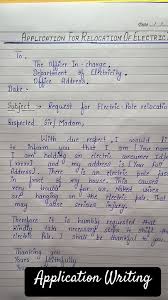 Date -
APPLICATION FOR RELOCATION OF ELECTRIC
To,
The Officer In-charge,
Department of Electricity
Office Address.
Date -
Subject - Request for Electric Pole relocation
Respected Sir/Madam,
With due respect, I would
to inform you that I am
I am holding an electric consumer
my address is
Address). There is an electric pole
in front of my house. This causes
very for us. Naked wires
are hanging on the electric pole
that
Therefore it is humbly requested that
kindly take necessary steps to shift the
electric pole. I shall be thankful to you.
Thanking you
Yours faithfully
Application Writing